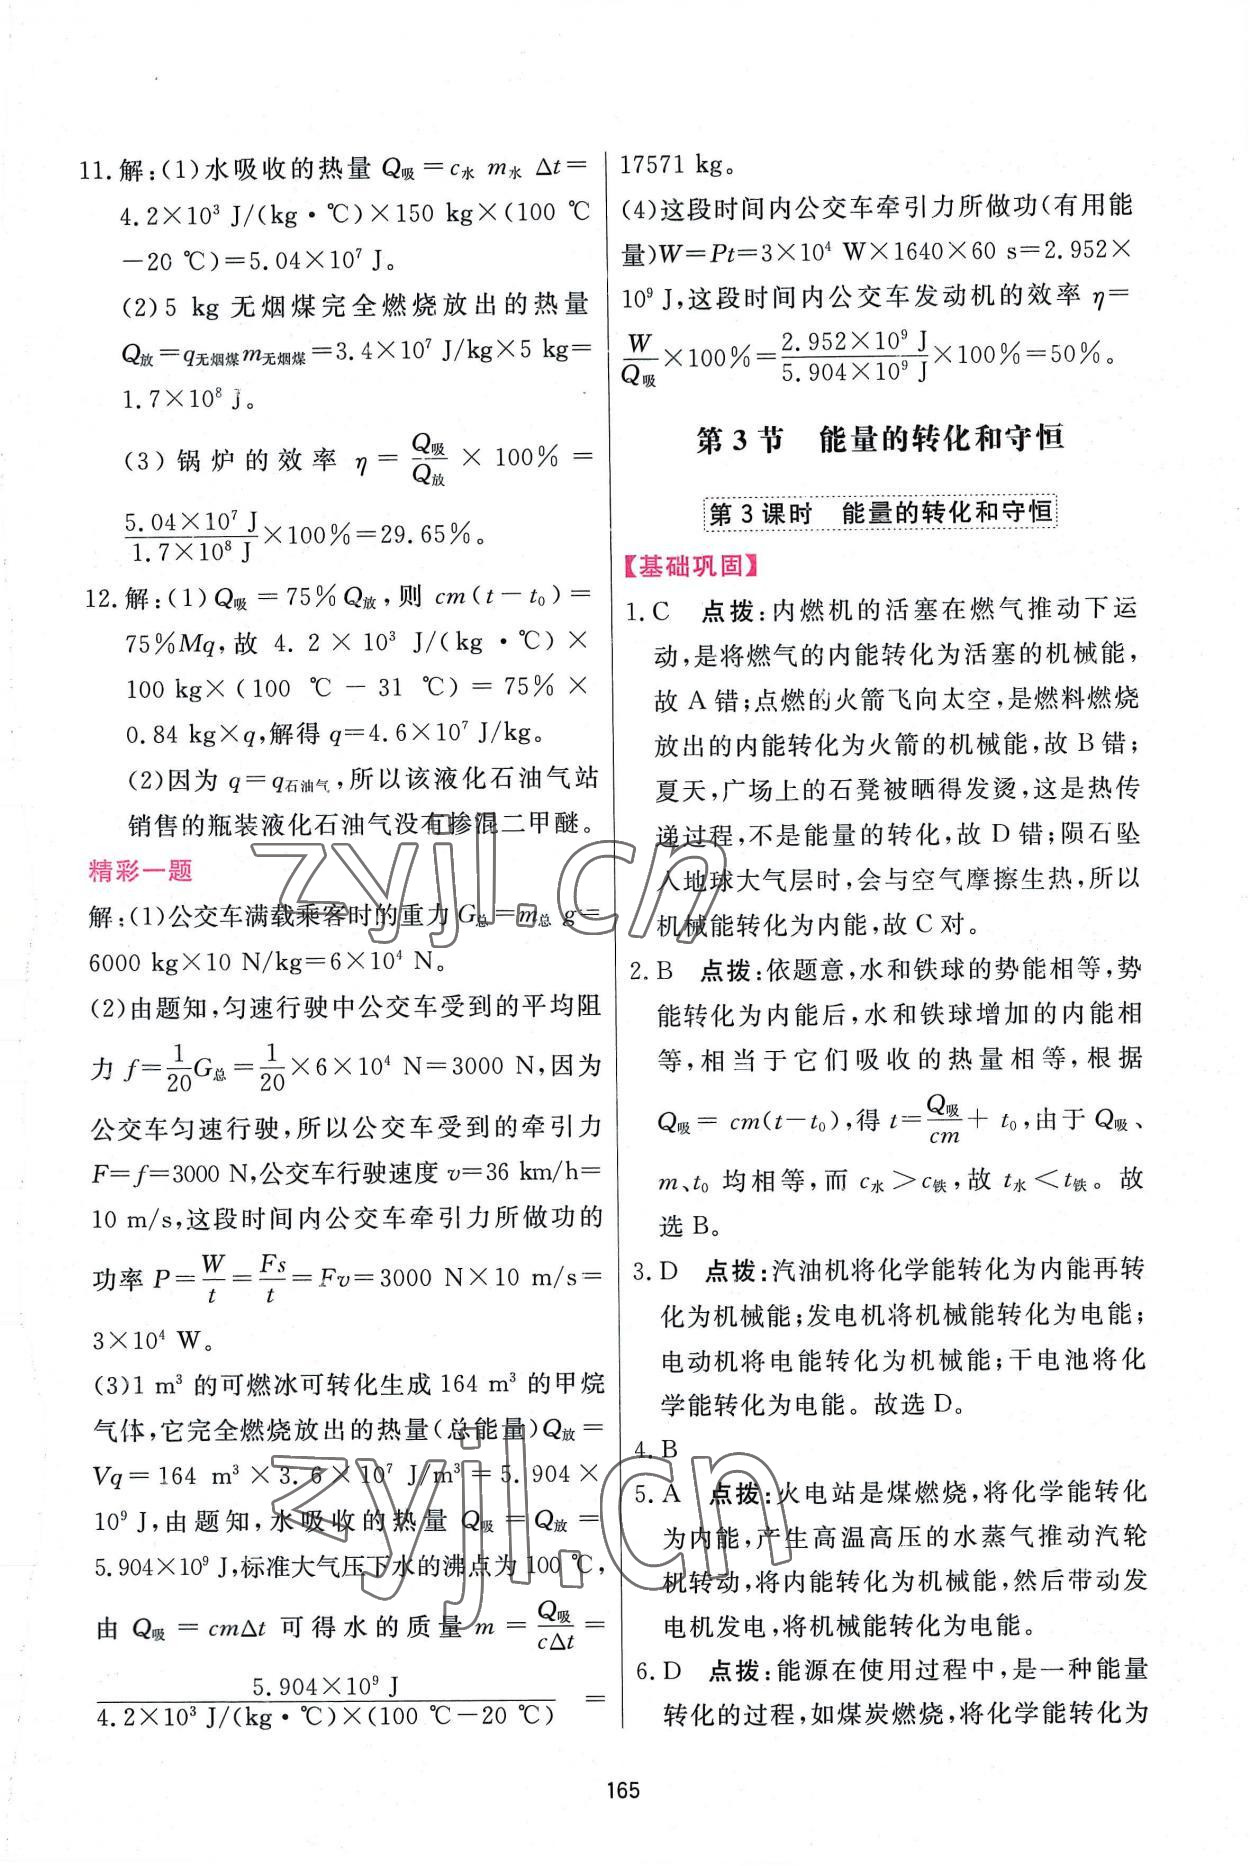 11. 解:(1)水吸收的热量 Q吸=c水 m水 Δt=
4.2×10³ J/(kg·℃)×150 kg×(100 ℃
-20 ℃)=5.04×10⁷ J。
(2)5 kg 无烟煤完全燃烧放出的热量
Q放=q无烟煤m无烟煤=3.4×10⁷ J/kg×5 kg=
1.7×10⁸ J。
(3)锅炉的效率 η=Q吸/Q放×100%=
5.04×10⁷ J/1.7×10⁸ J×100%=29.65%。
12. 解:(1)Q吸=75%Q放,则 cm(t-t₀)=
75%Mq,故 4.2×10³ J/(kg·℃)×
100 kg×(100 ℃-31 ℃)=75%×
0.84 kg×q,解得 q=4.6×10⁷ J/kg。
(2)因为 q=q石油气,所以该液化石油气站
销售的瓶装液化石油气没有掺混二甲醚。
精彩一题
解:(1)公交车满载乘客时的重力 G总=m总 g=
6000 kg×10 N/kg=6×10⁴ N。
(2)由题知,匀速行驶中公交车受到的平均阻
力 f=1/20G总=1/20×6×10⁴ N=3000 N,因为
公交车匀速行驶,所以公交车受到的牵引力
F=f=3000 N,公交车行驶速度 v=36 km/h=
10 m/s,这段时间内公交车牵引力所做功的
功率 P=W/t=Fs/t=Fv=3000 N×10 m/s=
3×10⁴ W。
(3)1 m³ 的可燃冰可转化生成 164 m³ 的甲烷
气体,它完全燃烧放出的热量(总能量)Q放=
Vq=164 m³×3.6×10⁷ J/m³=5.904×
10⁹ J,由题知,水吸收的热量 Q吸=Q放=
5.904×10⁹ J,标准大气压下水的沸点为100 ℃,
由 Q吸=cmΔt 可得水的质量 m=Q吸/cΔt=
5.904×10⁹ J/4.2×10³ J/(kg·℃)×(100 ℃-20 ℃)=
17571 kg。
(4)这段时间内公交车牵引力所做功(有用能
量)W=Pt=3×10⁴ W×1640×60 s=2.952×
10⁹ J,这段时间内公交车发动机的效率 η=
W/Q吸×100%=2.952×10⁹ J/5.904×10⁹ J×100%=50%。
第 3 节 能量的转化和守恒
第 3 课时 能量的转化和守恒
【基础巩固】
1. C 点拨:内燃机的活塞在燃气推动下运
动,是将燃气的内能转化为活塞的机械能,
故 A 错;点燃的火箭飞向太空,是燃料燃烧
放出的内能转化为火箭的机械能,故 B 错;
夏天,广场上的石凳被晒得发烫,这是热传
递过程,不是能量的转化,故 D 错;陨石坠
入地球大气层时,会与空气摩擦生热,所以
机械能转化为内能,故 C 对。
2. B 点拨:依题意,水和铁球的势能相等,势
能转化为内能后,水和铁球增加的内能相
等,相当于它们吸收的热量相等,根据
Q吸=cm(t-t₀),得 t=Q吸/cm+t₀,由于 Q吸、
m、t₀ 均相等,而 c水>c铁,故 t水<t铁。故
选 B。
3. D 点拨:汽油机将化学能转化为内能再转
化为机械能;发电机将机械能转化为电能;
电动机将电能转化为机械能;干电池将化
学能转化为电能。故选 D。
4. B
5. A 点拨:火电站是煤燃烧,将化学能转化
为内能,产生高温高压的水蒸气推动汽轮
机转动,将内能转化为机械能,然后带动发
电机发电,将机械能转化为电能。
6. D 点拨:能源在使用过程中,是一种能量
转化的过程,如煤炭燃烧,将化学能转化为
165
zyjl.cn
zyjl.cn